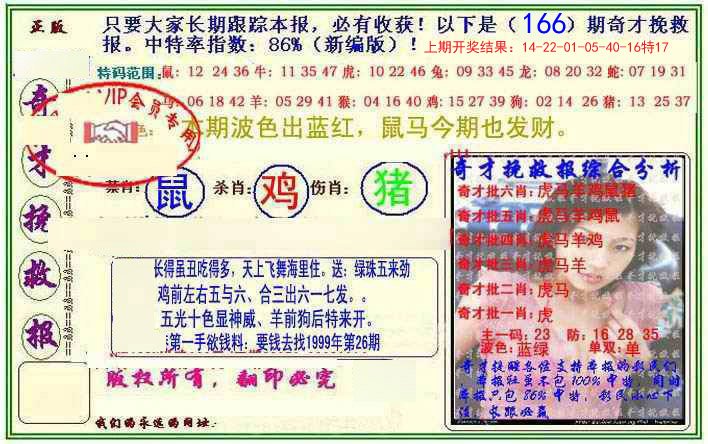 正版
只要大家长期跟踪本报，必有收获！以下是（166）期奇才挽救
报。中特率指数：86%（新编版）！上期开奖结果：14-22-01-05-40-16特17
特码范围：鼠：12 24 36 牛：11 35 47 虎：10 22 46 兔：09 33 45 龙：08 20 32 蛇：07 19 31
06 18 42 羊：05 29 41 猴：04 16 40 鸡：15 27 39 狗：02 14 26 猪：13 25 37
VIP会员专用
色：本期波色出蓝红，鼠马今期也发财。
奇才挽救报
禁肖：鼠 杀肖：鸡 伤肖：猪
长得虽丑吃得多，天上飞舞海里住。送：绿珠五来劲
鸡前左右五与六、合三出六一七发。。
五光十色显神威、羊前狗后特来开。
第一手欲钱料：要钱去找1999年第26期
版权所有，翻印必究
我们的永远的网址：
奇才挽救报综合分析
奇才批六肖：虎马羊鸡鼠猪
奇才批五肖：虎马羊鸡鼠
奇才批四肖：虎马羊鸡
奇才批三肖：虎马羊
奇才批二肖：虎马
奇才批一肖：虎
主一码：23 防：16 28 35
波色：蓝绿 单双：单
奇才提醒各位支持本报的彩民们
本报坦虽不包100%中特，但时
本报只包86%中特，彩民小心下
注，长跟必赢